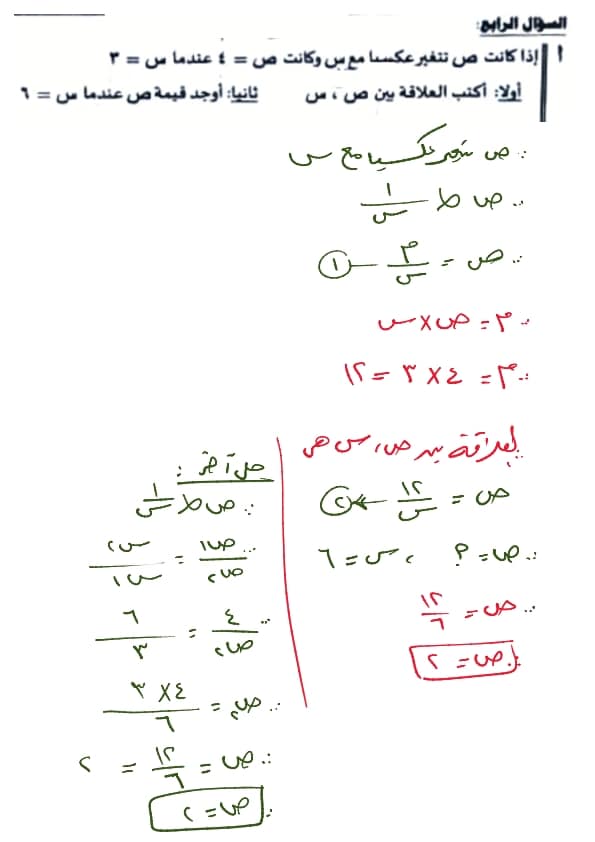 السؤال الرابع:
أ إذا كانت ص تتغير عكسيا مع س وكانت ص = ٤ عندما س = ٣
أولا: أكتب العلاقة بين ص ، س ثانيا: أوجد قيمة ص عندما س = ٦
∵ ص تتغير عكسيا مع س
∴ ص ∝ ١/س
∴ ص = م/س ← ١
∴ م = ص × س
∴ م = ٤ × ٣ = ١٢
العلاقة بين ص، س هي
ص = ١٢/س ← ٢
∵ ص = ؟ ، س = ٦
∴ ص = ١٢/٦
∴ ص = ٢
حل آخر :
∵ ص ∝ ١/س
∴ ص١/ص٢ = س٢/س١
∴ ٤/ص٢ = ٦/٣
∴ ص٢ = ٤ × ٣/٦
∴ ص = ١٢/٦ = ٢
∴ ص = ٢